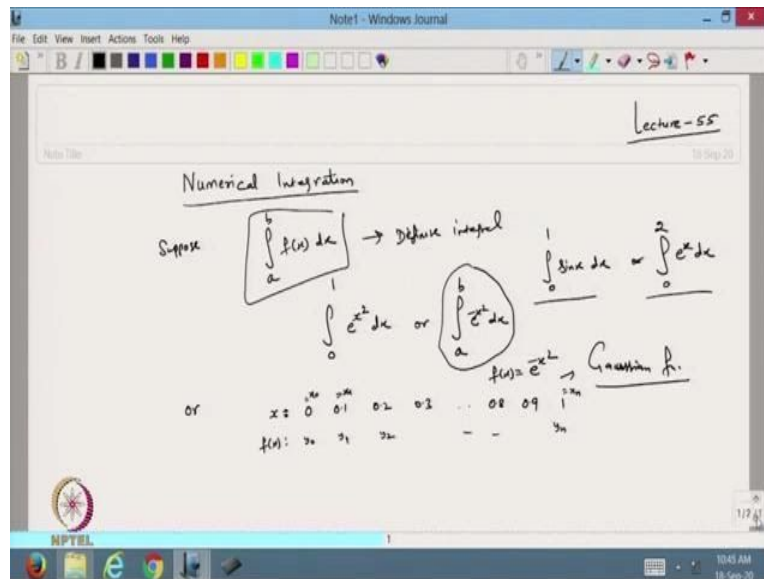 Note1 - Windows Journal
File Edit View Insert Actions Tools Help
B I
Lecture-55
Note Title
18-Sep-20
Numerical Integration
Suppose ∫_a^b f(x) dx → Definite integral ∫_0^1 sinx dx or ∫_0^2 e^x dx
∫_0^1 e^{x^2} dx or ∫_a^b e^{-x^2} dx
f(x) = e^{-x^2} → Gaussian fn.
or x: 0 =x_0 0.1 =x_1 0.2 0.3 .. 0.8 0.9 1 =x_n
f(x): y_0 y_1 y_2 - - y_n
NPTEL
1
1/2
10:45 AM
18-Sep-20